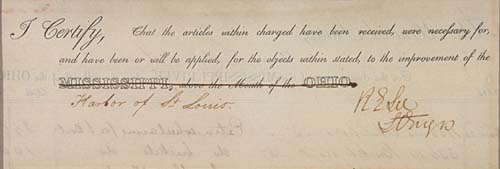 I Certify, That the articles within charged have been received, were necessary for,
and have been or will be applied, for the objects within stated, to the improvement of the
MISSISSIPPI, above the Mouth of the OHIO.
Harbor of St Louis.
R E Lee